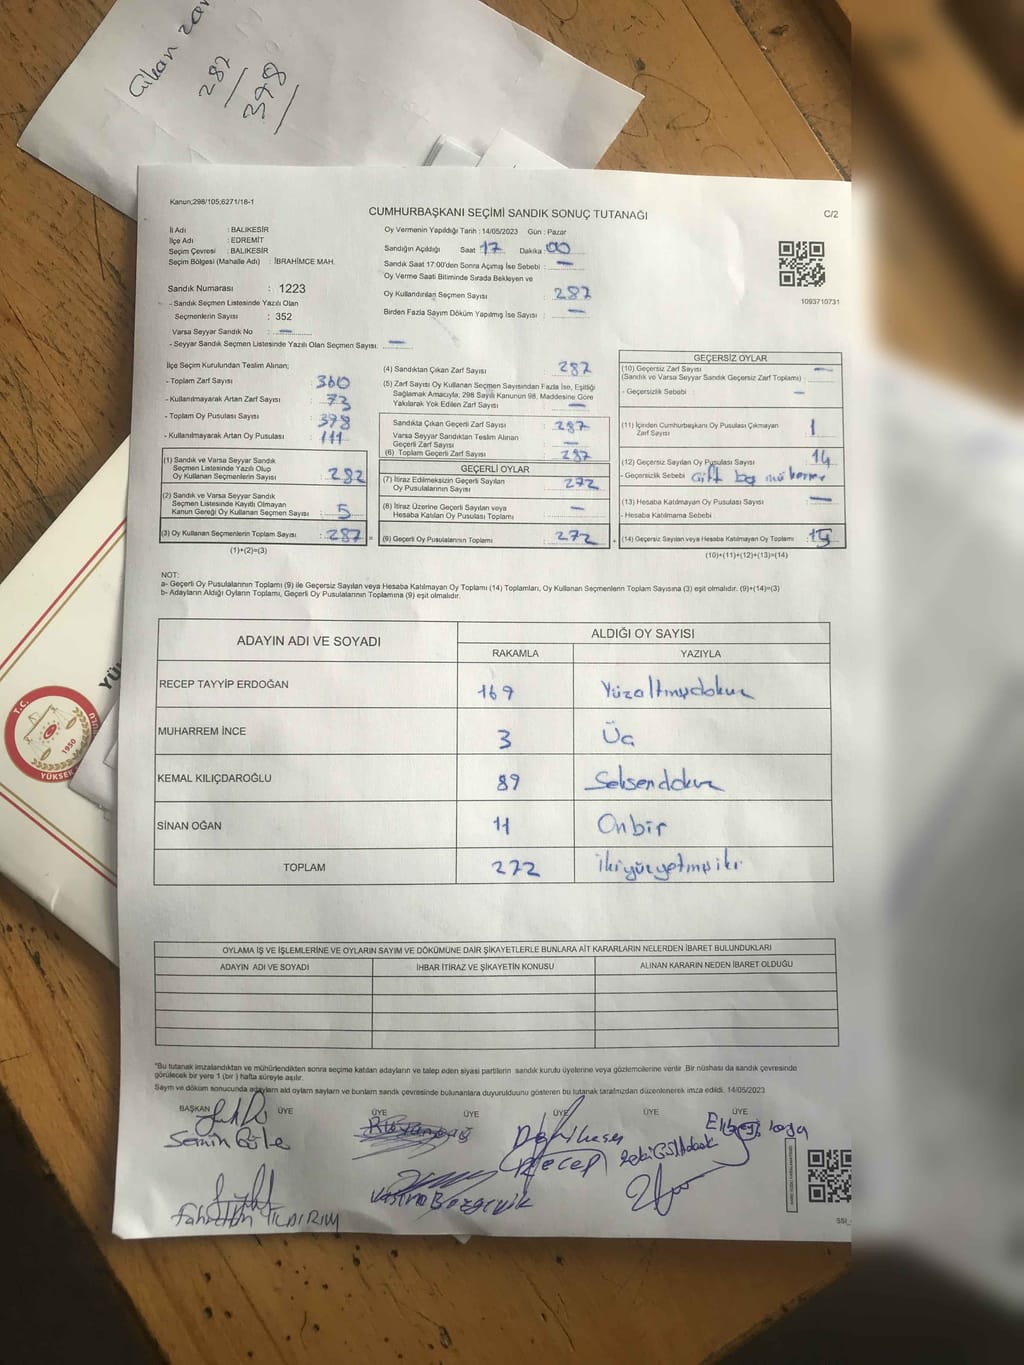 Çıkan zar
287
378
Kanun;298/105;6271/18-1
CUMHURBAŞKANI SEÇİMİ SANDIK SONUÇ TUTANAĞI
C/2
İl Adı : BALIKESİR
İlçe Adı : EDREMIT
Seçim Çevresi : BALIKESİR
Seçim Bölgesi (Mahalle Adı) : İBRAHİMCE MAH.
Oy Vermenin Yapıldığı Tarih : 14/05/2023 Gün : Pazar
Sandığın Açıldığı Saat 17 Dakika : 00
Sandık Saat 17:00'den Sonra Açımış İse Sebebi : —
Oy Verme Saati Bitiminde Sırada Bekleyen ve
Oy Kullandırılan Seçmen Sayısı : 287
Birden Fazla Sayım Döküm Yapılmış İse Sayısı : —
1093710731
Sandık Numarası : 1223
- Sandık Seçmen Listesinde Yazılı Olan
Seçmenlerin Sayısı : 352
Varsa Seyyar Sandık No : —
- Seyyar Sandık Seçmen Listesinde Yazılı Olan Seçmen Sayısı: —
İlçe Seçim Kurulundan Teslim Alınan;
- Toplam Zarf Sayısı : 360
- Kullanılmayarak Artan Zarf Sayısı : 73
- Toplam Oy Pusulası Sayısı : 378
- Kullanılmayarak Artan Oy Pusulası : 111
(1) Sandık ve Varsa Seyyar Sandık
Seçmen Listesinde Yazılı Olup
Oy Kullanan Seçmenlerin Sayısı : 282
(2) Sandık ve Varsa Seyyar Sandık
Seçmen Listesinde Kayıtlı Olmayan
Kanun Gereği Oy Kullanan Seçmen Sayısı : 5
(3) Oy Kullanan Seçmenlerin Toplam Sayısı : 287
(1)+(2)=(3)
(4) Sandıktan Çıkan Zarf Sayısı : 287
(5) Zarf Sayısı Oy Kullanan Seçmen Sayısından Fazla İse, Eşitliği
Sağlamak Amacıyla; 298 Sayılı Kanunun 98. Maddesine Göre
Yakılarak Yok Edilen Zarf Sayısı : —
Sandıkta Çıkan Geçerli Zarf Sayısı : 287
Varsa Seyyar Sandıktan Teslim Alınan
Geçerli Zarf Sayısı : —
(6) Toplam Geçerli Zarf Sayısı : 287
GEÇERLİ OYLAR
(7) İtiraz Edilmeksizin Geçerli Sayılan
Oy Pusulalarının Sayısı : 272
(8) İtiraz Üzerine Geçerli Sayılan veya
Hesaba Katılan Oy Pusulası Toplamı : —
(9) Geçerli Oy Pusulalarının Toplamı : 272
GEÇERSİZ OYLAR
(10) Geçersiz Zarf Sayısı : —
(Sandık ve Varsa Seyyar Sandık Geçersiz Zarf Toplamı)
- Geçersizlik Sebebi : —
(11) İçinden Cumhurbaşkanı Oy Pusulası Çıkmayan
Zarf Sayısı : 1
(12) Geçersiz Sayılan Oy Pusulası Sayısı : 14
- Geçersizlik Sebebi : Çift
(13) Hesaba Katılmayan Oy Pusulası Sayısı : —
- Hesaba Katılmama Sebebi :
(14) Geçersiz Sayılan veya Hesaba Katılmayan Oy Toplamı : 15
(10)+(11)+(12)+(13)=(14)
NOT:
a- Geçerli Oy Pusulalarının Toplamı (9) ile Geçersiz Sayılan veya Hesaba Katılmayan Oy Toplamı (14) Toplamları, Oy Kullanan Seçmenlerin Toplam Sayısına (3) eşit olmalıdır. (9)+(14)=(3)
b- Adayların Aldığı Oyların Toplamı, Geçerli Oy Pusulalarının Toplamına (9) eşit olmalıdır.
ADAYIN ADI VE SOYADI
ALDIĞI OY SAYISI
RAKAMLA YAZIYLA
RECEP TAYYİP ERDOĞAN 169 Yüzaltmışdokuz
MUHARREM İNCE 3 Üç
KEMAL KILIÇDAROĞLU 89 Seksendokuz
SİNAN OĞAN 11 Onbir
TOPLAM 272 ikiyüzyetmişiki
OYLAMA İŞ VE İŞLEMLERİNE VE OYLARIN SAYIM VE DÖKÜMÜNE DAİR ŞİKAYETLERLE BUNLARA AİT KARARLARIN NELERDEN İBARET BULUNDUKLARI
ADAYIN ADI VE SOYADI İHBAR İTİRAZ VE ŞİKAYETİN KONUSU ALINAN KARARIN NEDEN İBARET OLDUĞU
"Bu tutanak imzalandıktan ve mühürlendikten sonra seçime katılan adayların ve talep eden siyasi partilerin sandık kurulu üyelerine veya gözlemcilerine verilir .Bir nüshası da sandık çevresinde
görülecek bir yere 1 (bir ) hafta süreyle asılır.
Sayım ve döküm sonucunda adayların aldığı oyların sayıların ve bunların sandık çevresinde bulunanlara duyurulduunu gösteren bu tutanak tarafımızdan düzenlenerek imza edildi. 14/05/2023
BAŞKAN ÜYE ÜYE ÜYE ÜYE ÜYE ÜYE
Recep
Fahrettin YILDIRIM
T.C.
1950
YÜKSEK
YÜK